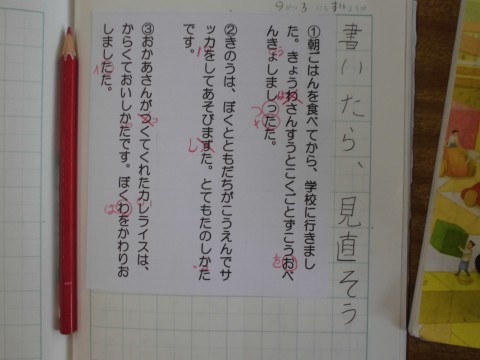 書いたら、見直そう
①朝ごはんを食べてから、学校に行きまし
た。きょうわさんすうとこくごとずこうおべ
んきょしましったた。
②きのうは、ぼくとともだちがこうえんでサ
ッカをしてあそびますた。とてもたのしかた
です。
③おかあさんがつくてくれたカレライスは、
からくておいしかたです。ぼくわをかわりお
しましたた。
は
う
を
し
は